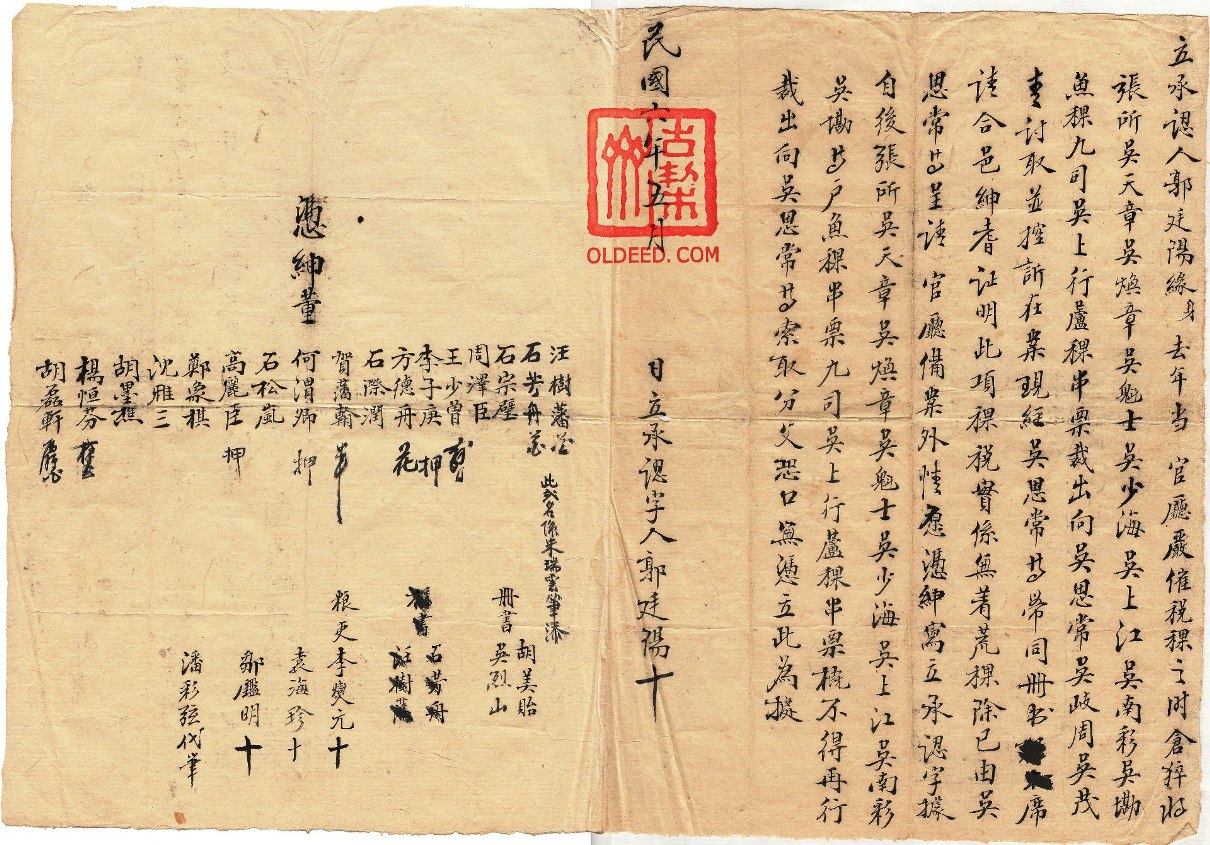 立承認人郭廷陽緣身去年当 官廳嚴催税稞之时倉猝將
張所吳天章吳煥章吳魁士吳少海吳上江吳南彩吳勘
魚稞九司吳上行蘆稞串票裁出向吳恩常吳岐周吳茂
青討取並控訴在案現經吳恩常等帶同册书席
請合邑紳耆证明此項稞税實係無着荒稞除已由吳
恩常等呈请 官廳備案外情愿憑紳寫立承認字據
自後張所吳天章吳煥章吳魁士吳少海吳上江吳南彩
吳勘等户魚稞串票九司吳上行蘆稞串票概不得再行
裁出向吳恩常等索取分文恐口無憑立此為據
民國六年五月 日立承認字人郭廷陽十
古契
OLDEED.COM
憑紳董
汪樹藩
石芳舟
石宗璧
周澤臣
王少曾
李子庚押
方德舟花
石際潤
賀藩翰
何渭卿押
石松嵐
高麗臣押
鄭象棋
沈雅三
胡墨樵
楊恒芬
胡磊軒
此弍名係朱瑞雲筆添
册書 胡美貽
吳烈山
石芳舟
汪樹藩
粮吏李燮元十
袁海珍十
鄒鑑明十
潘彩弦代筆